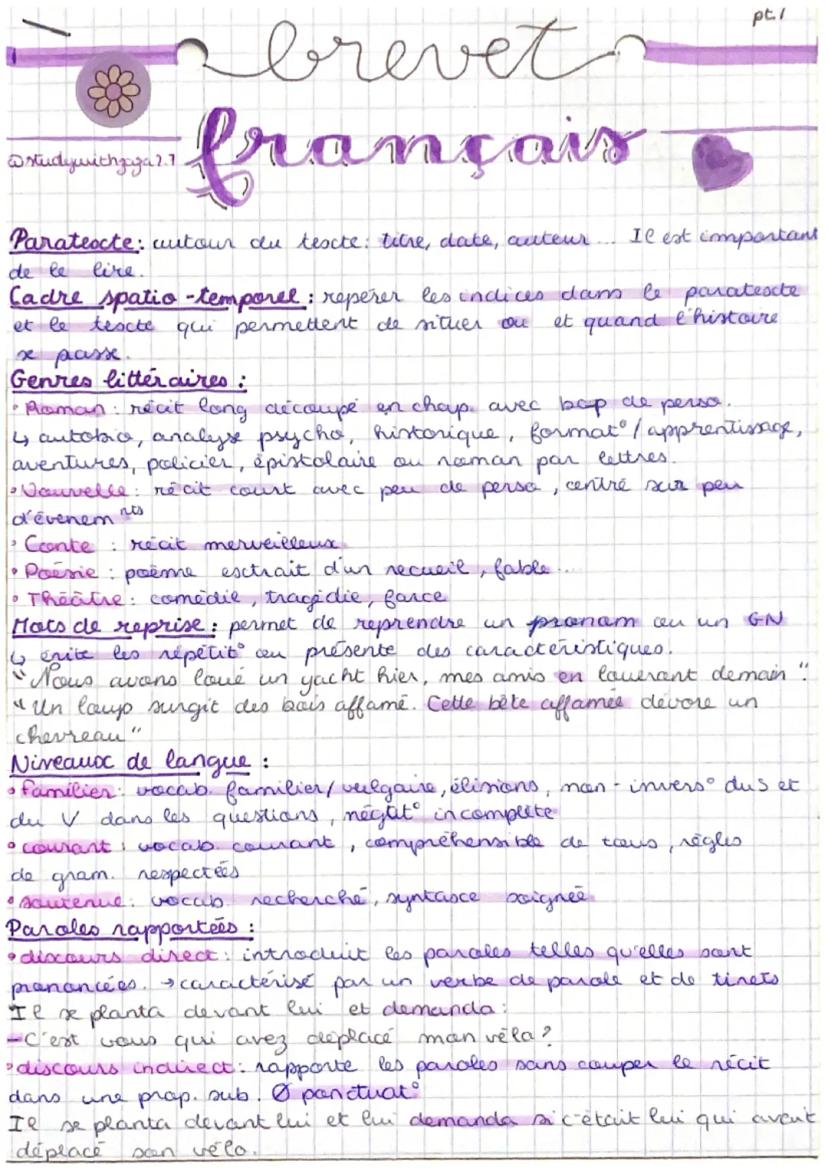 pt.1
brevet
français
@studywithgaga2.7
Paratexte: autour du texte: titre, date, auteur... Il est important
de le lire.
Cadre spatio-temporel: repérer les indices dans le paratexte
et le texte qui permettent de situer ou et quand l'histoire
se passe.
Genres littéraires:
• Roman: récit long découpé en chap. avec bcp de perso.
↳ autobio, analyse psycho, historique, format°/apprentissage,
aventures, policier, épistolaire ou roman par lettres.
• Nouvelle: récit court avec peu de perso, centré sur peu
d'évenem nts
• Conte: récit merveilleux
• Poésie: poème extrait d'un recueil, fable...
• Théâtre: comédie, tragédie, farce
Mots de reprise: permet de reprendre un pronom ou un GN
↳ évite les répétit° ou présente des caractéristiques.
"Nous avons loué un yacht hier, mes amis en loueront demain".
"Un loup surgit des bois affamé. Cette bête affamée dévore un
chevreau"
Niveaux de langue:
• familier: vocab. familier/vulgaire, élisions, non-invers° du S et
du V dans les questions, négat° incomplète
• courant: vocab courant, compréhensible de tous, règles
de gram. respectées
• soutenue: vocab. recherché, syntaxe soignée
Paroles rapportées:
• discours direct: introduit les paroles telles qu'elles sont
prononcées. → caractérisé par un verbe de parole et de tirets
Il se planta devant lui et demanda:
-C'est vous qui avez déplacé mon vélo?
• discours indirect: rapporte les paroles sans couper le récit
dans une prop. sub. Ø ponctuat°
Il se planta devant lui et lui demanda si c'était lui qui avait
déplacé son vélo.